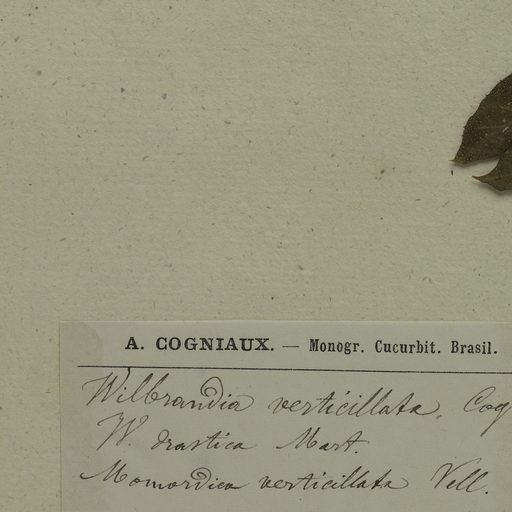 A. COGNIAUX. — Monogr. Cucurbit. Brasil.
Wilbrandia verticillata, Cog
W. drastica Mart.
Momordica verticillata Vell.